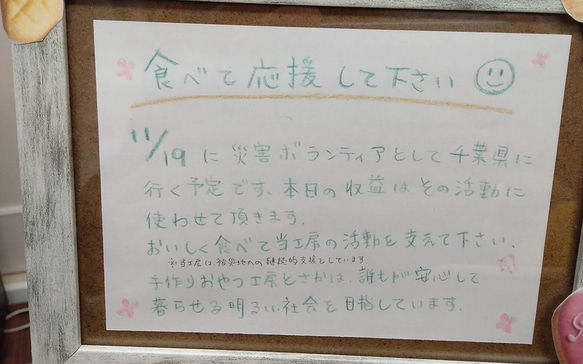 食べて応援して下さい
11/19に災害ボランティアとして千葉県に
行く予定です。本日の収益はその活動に
使わせて頂きます。
おいしく食べて当工房の活動を支えて下さい。
※当工房は、被災地への継続的支援としています。
手作りおやつ工房とさかは、誰もが安心して
暮らせる明るい社会を目指しています。